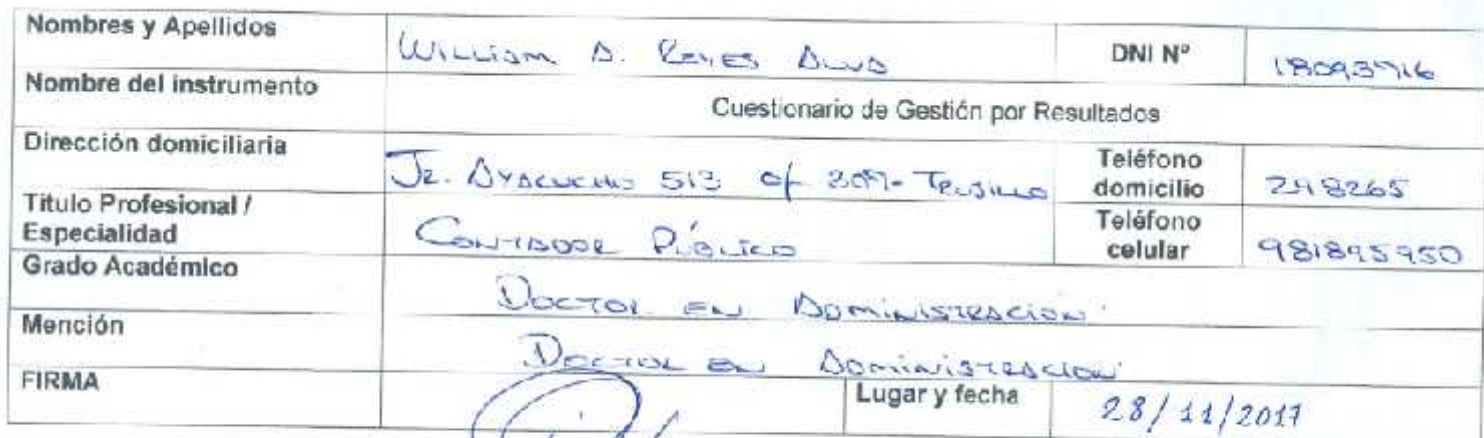 Nombres y Apellidos WILLIAM A. REYES ALVA DNI Nº
Nombre del instrumento Cuestionario de Gestión por Resultados
Dirección domiciliaria JR. AYACUCHO 513 of - TRUJILLO Teléfono domicilio 248265
Titulo Profesional / Especialidad CONTADOR PÚBLICO Teléfono celular 981895950
Grado Académico DOCTOR EN ADMINISTRACION
Mención DOCTOR EN ADMINISTRACION
FIRMA Lugar y fecha 28/11/2017